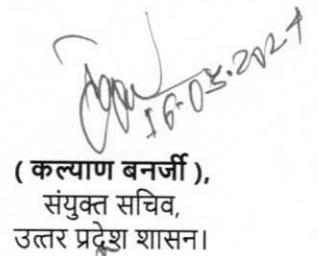 16-03-2024
( कल्याण बनर्जी ),
संयुक्त सचिव,
उत्तर प्रदेश शासन।